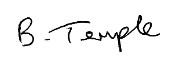 B. Temple